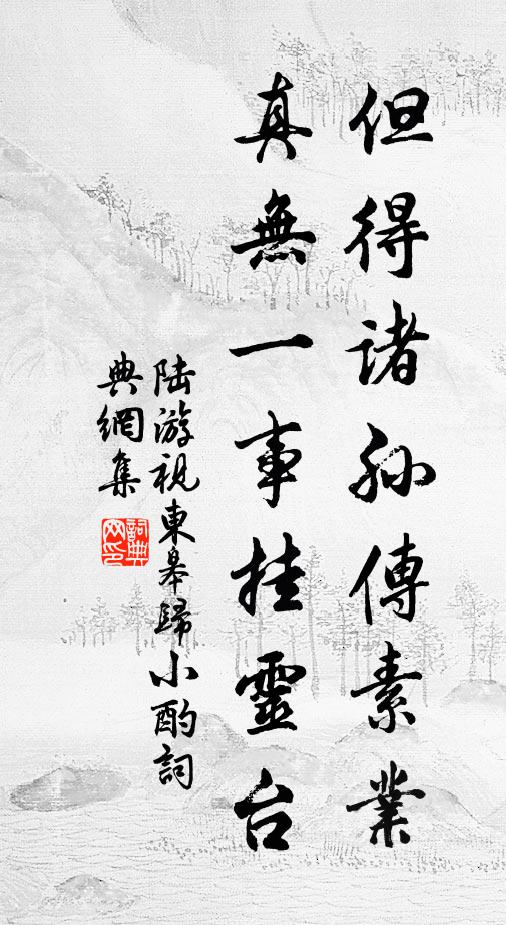 但得诸孙傳素業
真無一事挂靈台
陆游視東皋歸小酌詞
典網集
詞典网印